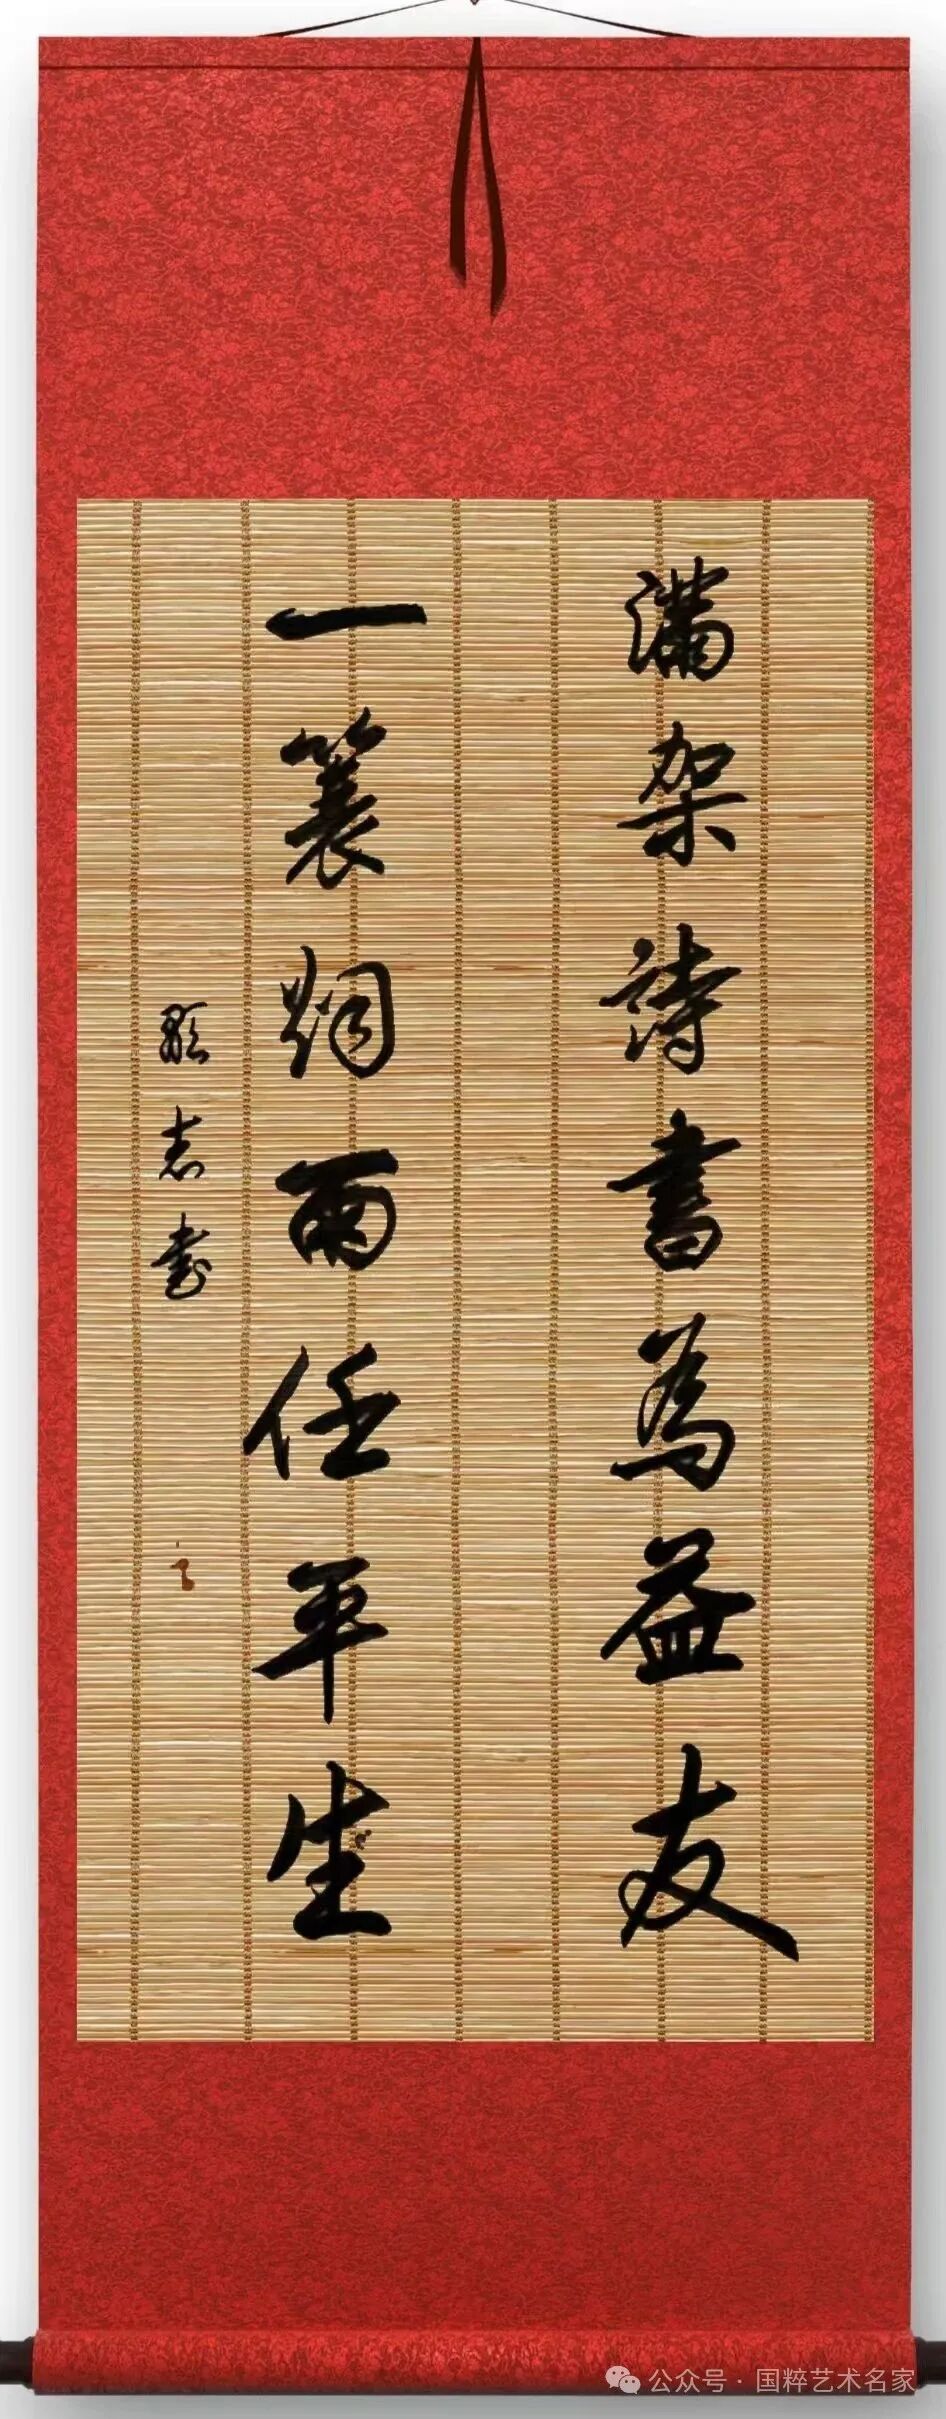 滿架詩書為益友
一簑烟雨任平生
志書
公众号 · 国粹艺术名家